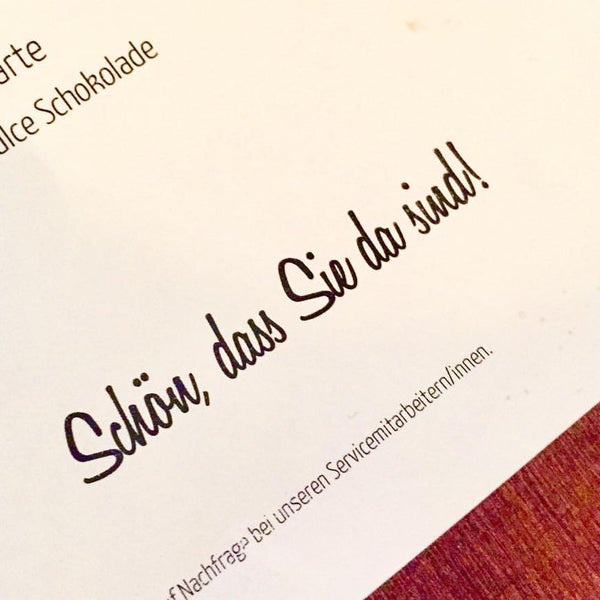 Schokolade
Schön, dass Sie da sind!
Nachfrage bei unseren Servicemitarbeitern/innen.